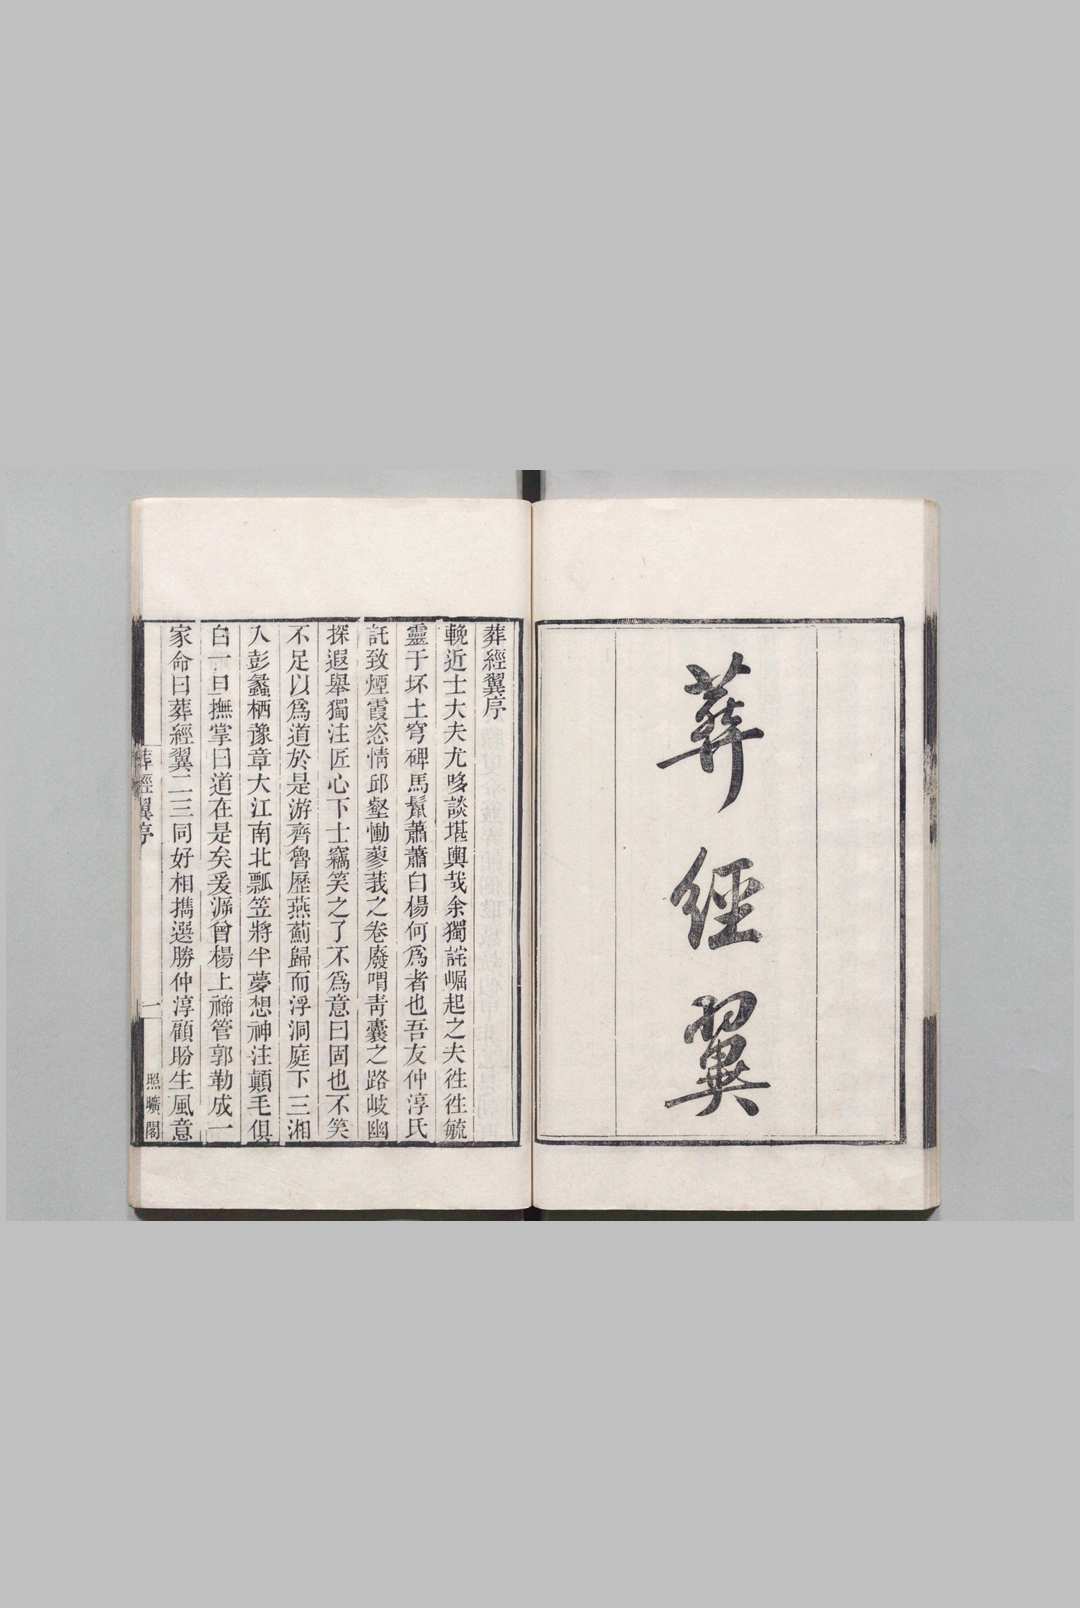 葬經翼
葬經翼序
輓近士大夫尤哆談堪輿哉余獨詫崛起之夫徃徃毓
靈于坏土穹碑馬鬛蕭蕭白楊何爲者也吾友仲淳氏
託致煙霞恣情邱壑慟蓼莪之卷廢喟靑囊之路岐幽
探遐舉獨注匠心下士竊笑之了不爲意曰固也不笑
不足以爲道於是游齊魯歷燕薊歸而浮洞庭下三湘
入彭蠡栖豫章大江南北瓢笠將半夢想神注顛毛俱
白一旦撫掌曰道在是矣爰溯曾楊上禘管郭勒成一
家命曰葬經翼二三同好相攜選勝仲淳顧盼生風意
葬經翼序
一
照曠閣